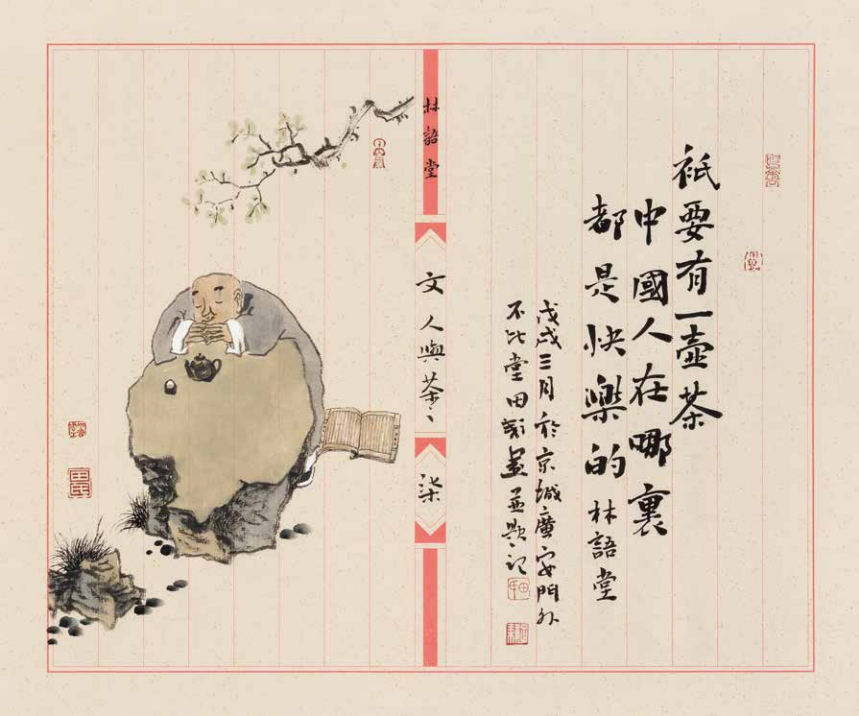 祇要有一壺茶
中國人在哪裏
都是快樂的 林語堂
戊戌三月於京城廣安門外
不比堂田畫並題記
林語堂
文人與茶
柒